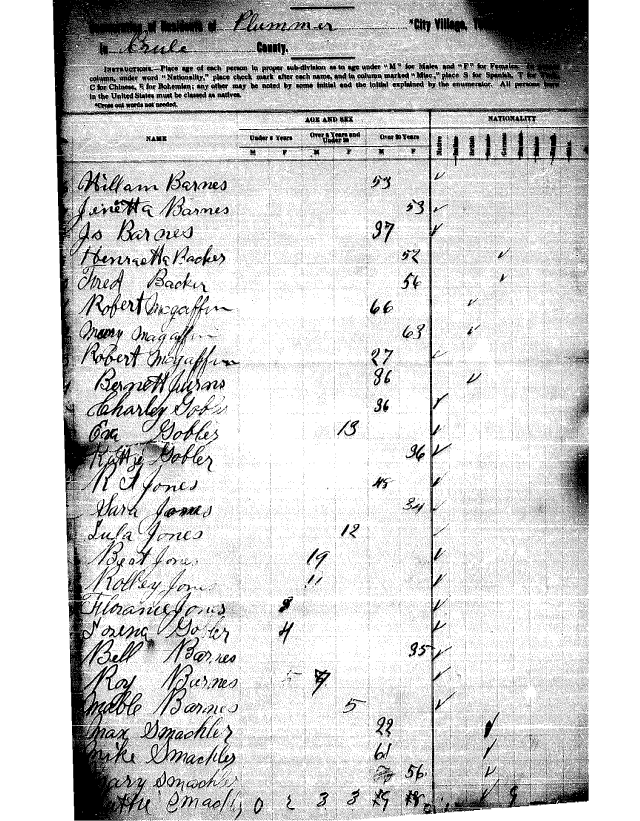 of Residents of Plummer *City Village,
in Brule County.
INSTRUCTIONS. Place age of each person in proper sub-division as to age under "M" for Males and "F" for Females. In
column, under word "Nationality," place check mark after each name, and in column marked "Misc," place S for Spanish, T for
C for Chinese, B for Bohemian; any other may be noted by some initial and the initial explained by the enumerator. All persons born
in the United States must be classed as natives.
*Cross out words not needed.
AGE AND SEX NATIONALITY
NAME Under 5 Years Over 5 Years and Under 20 Over 20 Years
M F M F M F
William Barnes 53 ✓
Jenetta Barnes 53 ✓
Jo Barnes 37 ✓
Henraetta Backer 52 ✓
Fred Backer 56 ✓
Robert Mcgaffin 66 ✓
Mary Magaffin 63 ✓
Robert Mcgaffin 27 ✓
Bernett 36 ✓
Charley Gobler 36 ✓
Eva Gobler 13 ✓
Gobler 36 ✓
R Jones 45 ✓
Sara Jones 34 ✓
Lula Jones 12 ✓
Beat Jones 19 ✓
Rolley Jones 11 ✓
Florance Jones ✓
Lorena Gobler 4 ✓
Bell Barnes 35 ✓
Roy Barnes 7 ✓
Mable Barnes 5 ✓
Max Smachler 22 ✓
Mike Smachler 61 ✓
Mary Smachler 56 ✓
0 2 3 3